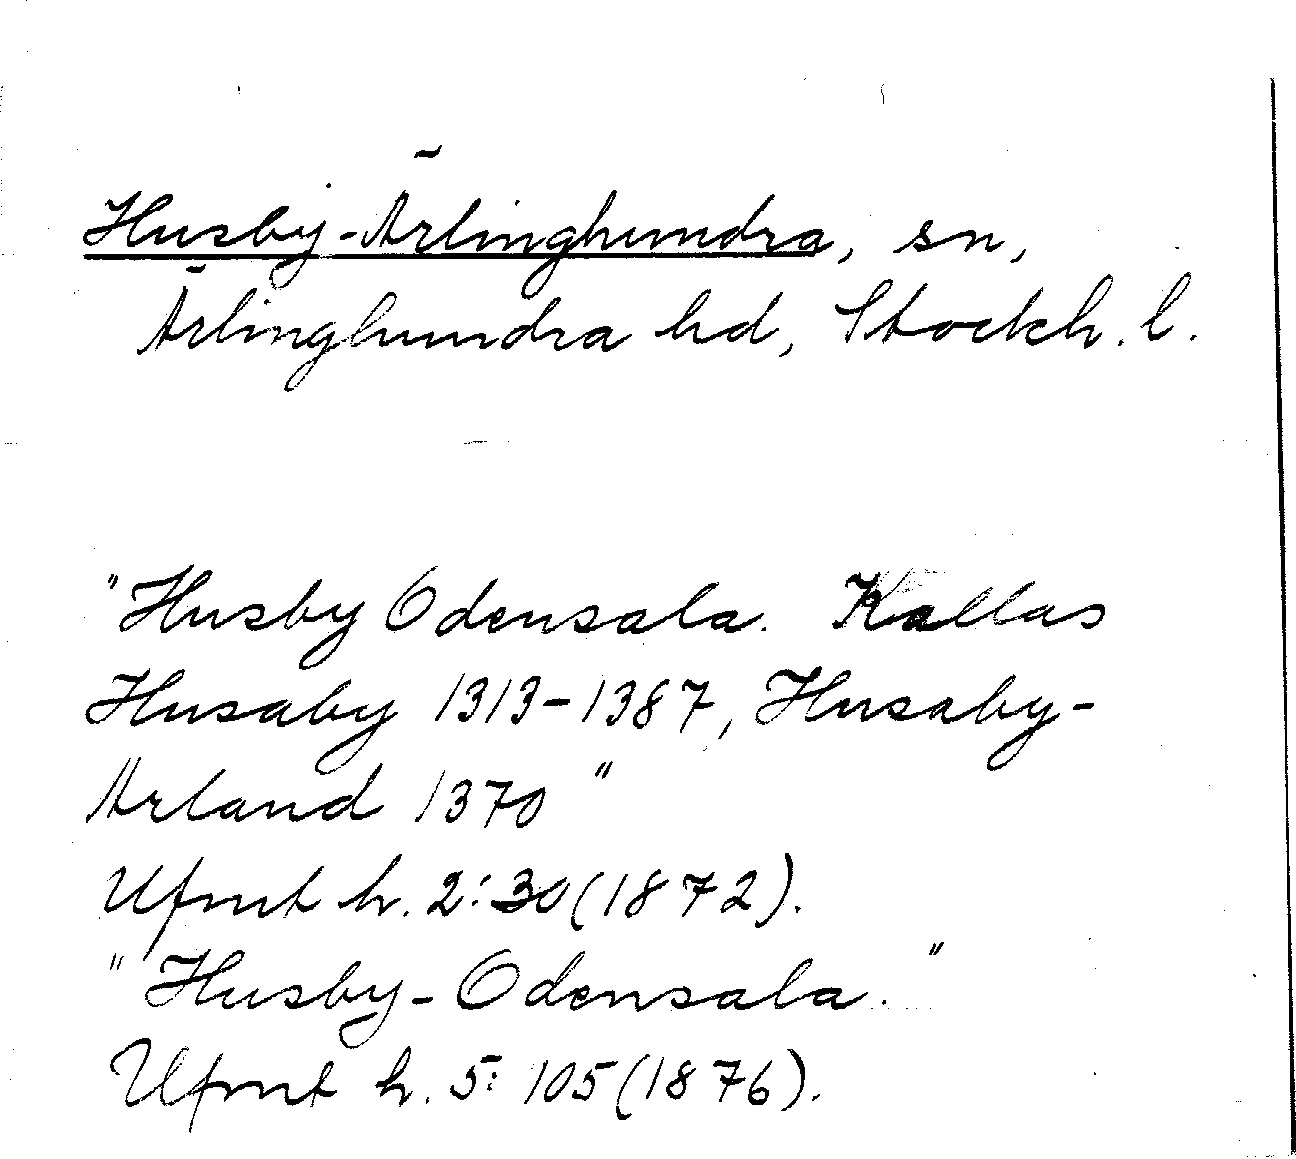 Husby-Ärlinghundra, sn,
Ärlinghundra hd, Stockh. l.
"Husby Odensala. Kallas
Husaby 1313-1387, Husaby-
Arland 1370"
Ufmt h. 2:30(1872).
"Husby-Odensala."
Ufmt h. 5: 105(1876).